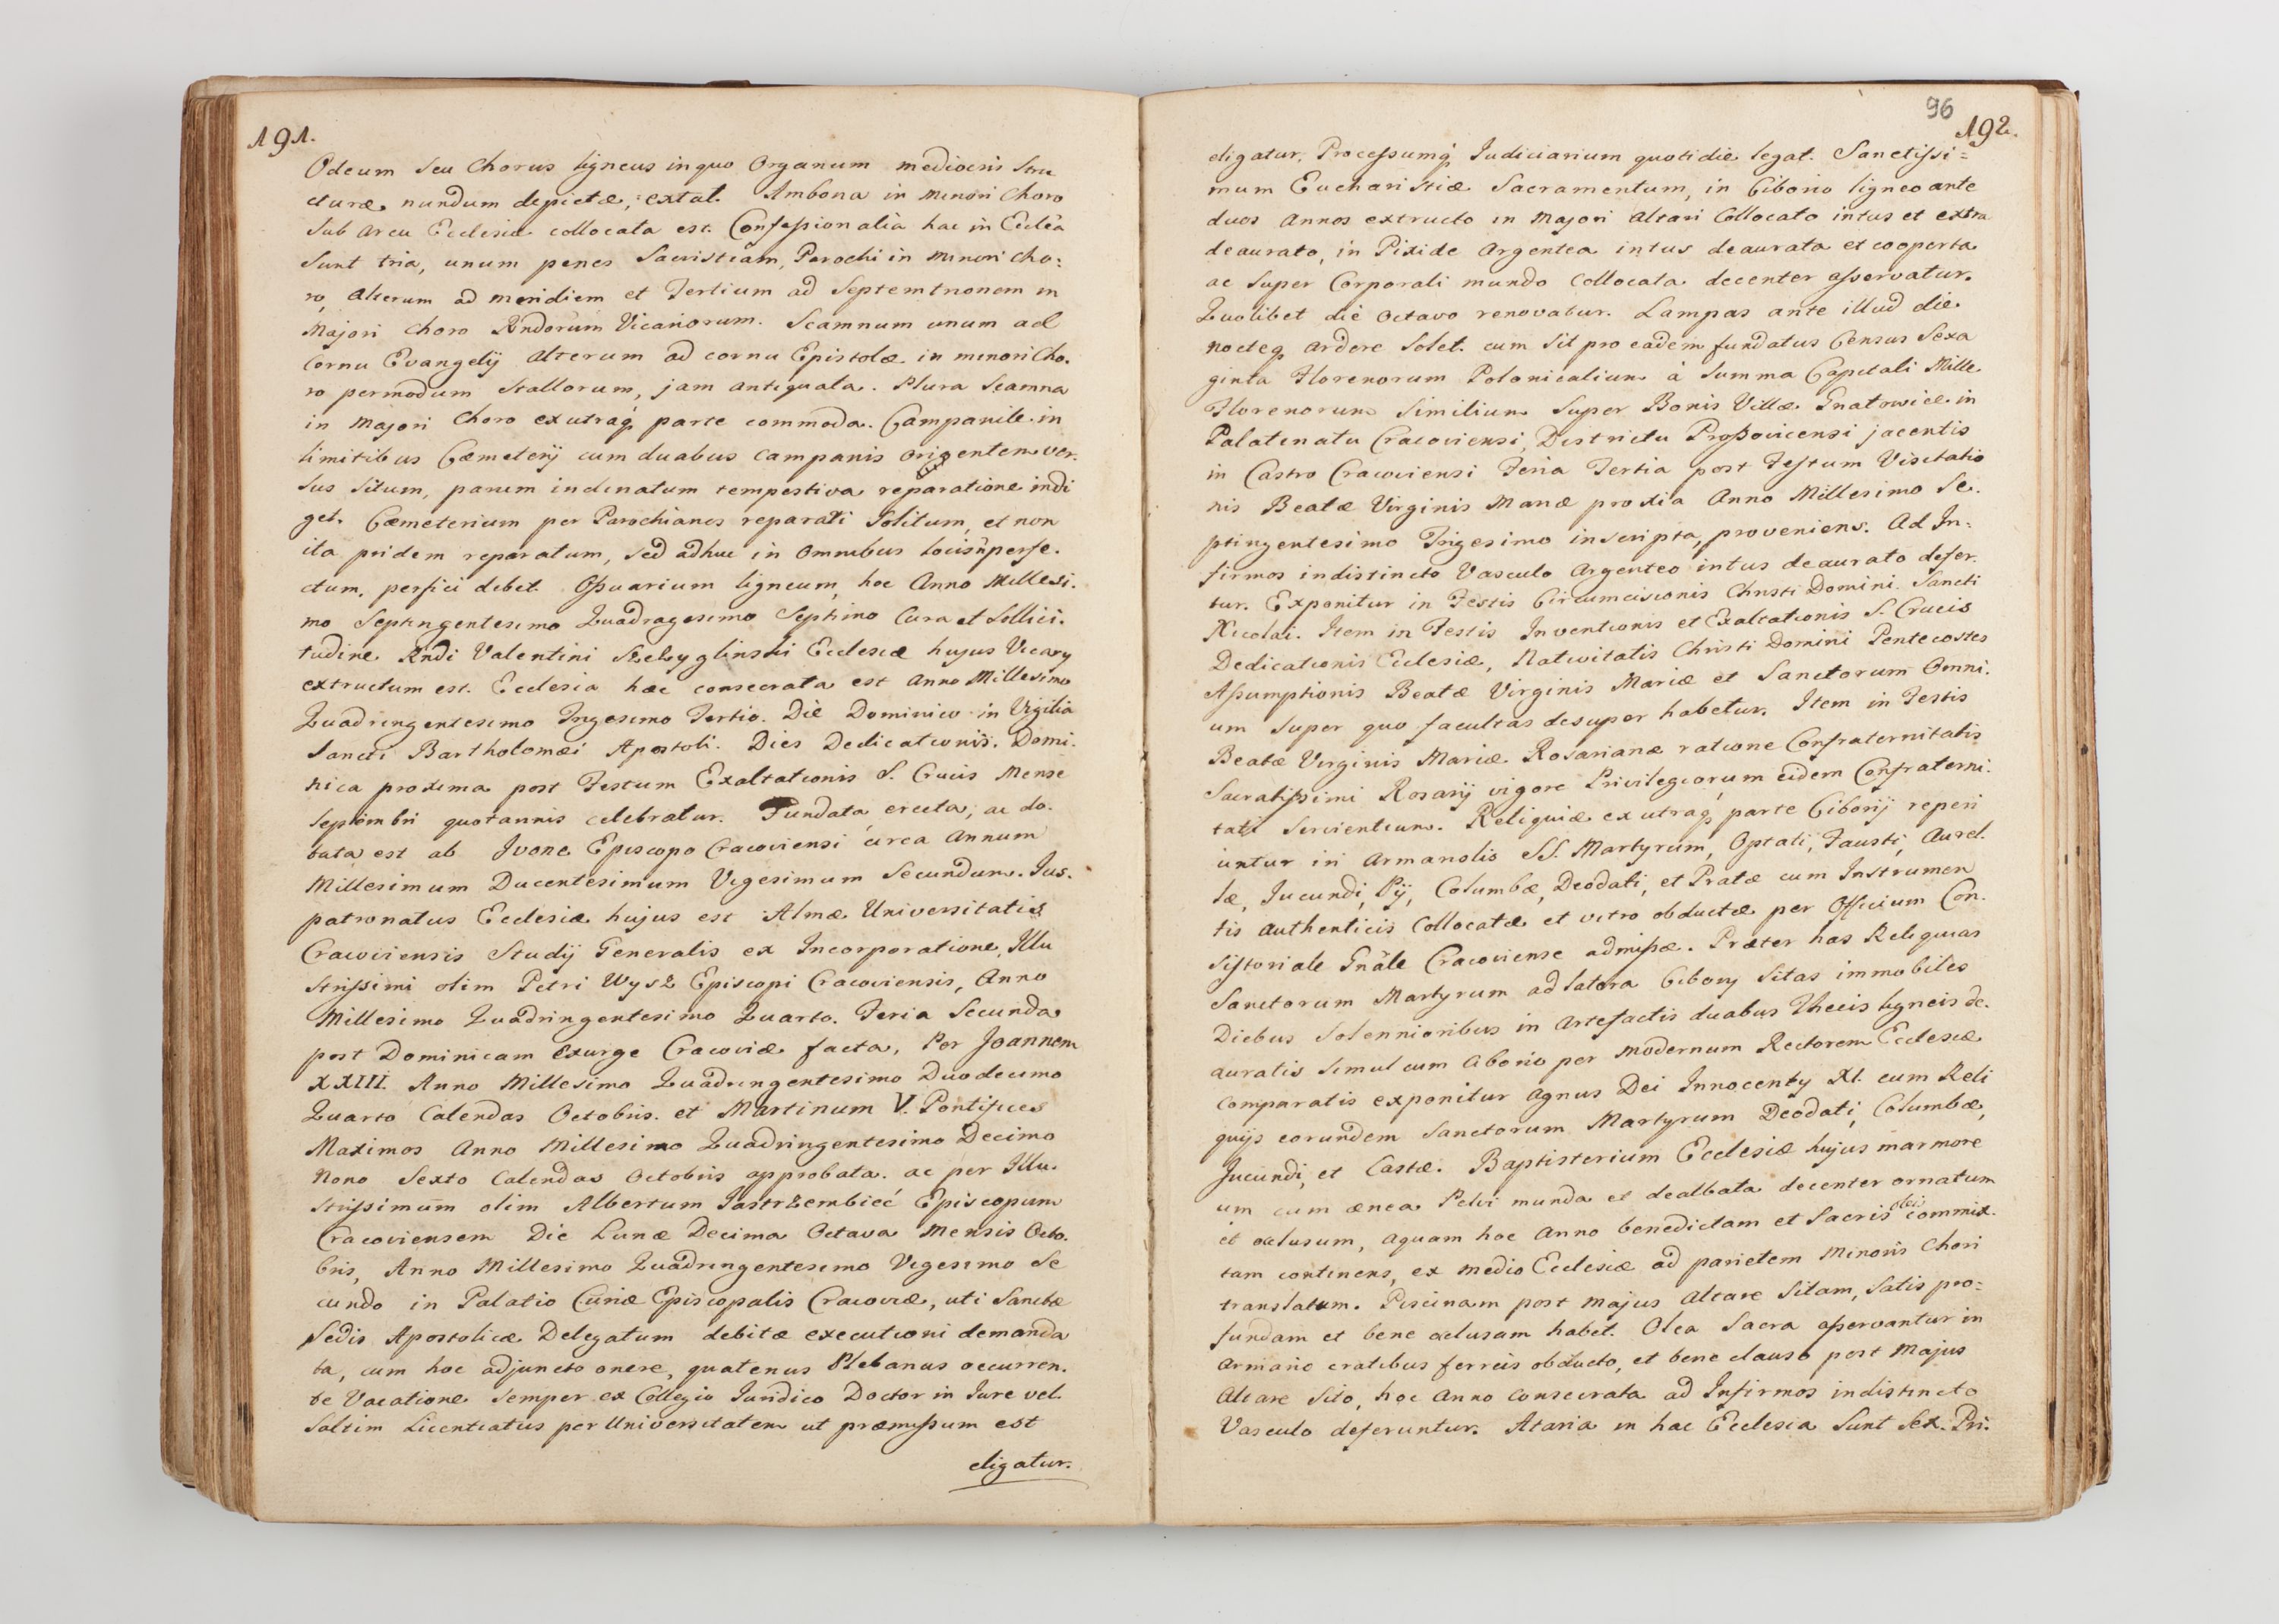 191.
Odeum seu Chorus ligneus in quo Organum mediocris stru
cturæ nundum depictæ, extat. Ambona in minori Choro
sub arcu Ecclesiæ collocata est. Confessionalia hac in Eccl̃ia
sunt tria, unum penes Sacristiam, Parochi in minori Cho:
ro, alterum ad meridiem et Tertium ad Septemtrionem in
Majori Choro Rndorum Vicariorum. Scamnum unum ad
Cornu Evangelij alterum ad cornu Epistolæ in minori Cho.
ro permodum Stallorum, jam antiquata. Plura Scamna
in Majori Choro ex utraq; parte commoda. Campanile in
limitibus Cæmeterij cum duabus campanis orientem ver.
sus situm, parum inclinatum tempestiva reparatione indi
get. Cæmeterium per Parochianos reparari solitum, et non
ita pridem reparatum, sed adhuc in omnibus locis inperfe.
ctum, perfici debet. Ossuarium ligneum, hoc Anno Millesi.
mo Septingentesimo Quadragesimo Septimo Cura et Sollici.
tudine Rndi Valentini Ecclesiæ hujus Vicary
extructum est. Ecclesia hæc consecrata est Anno Millesimo
Quadringentesimo Trigesimo Tertio. Die Dominico in Vigilia
Sancti Bartholomæi Apostoli. Dies Dedicationis. Domi.
nica proxima post Festum Exaltationis S. Crucis Mense
Septembri quotannis celebratur. Fundata erecta, ac do.
tata est ab Ivone Episcopo Cracoviensi circa Annum
Millesimum Ducentesimum Vigesimum Secundum. Jus.
patronatus Ecclesiæ hujus est Almæ Universitatis
Cracoviensis Studij Generalis ex Incorporatione, Illu
strissimi olim Petri Wysz Episcopi Cracoviensis, Anno
Millesimo Quadringentesimo Quarto. Feria Secunda
post Dominicam Exurge Cracoviæ facta, Per Joannem
XXIII. Anno Millesimo Quadringentesimo Duodecimo
Quarto Calendas Octobris. et Martinum V. Pontifices
Maximos Anno Millesimo Quadringentesimo Decimo
Nono Sexto Calendas Octobris approbata. ac per Illu.
strissimum olim Albertum Jastrzembiec Episcopum
Cracoviensem Die Lunæ Decima Octava Mensis Octo.
bris, Anno Millesimo Quadringentesimo Vigesimo Se
cundo in Palatio Curiæ Episcopalis Cracoviæ, uti Sanctæ
Sedis Apostolicæ Delegatum debitæ executioni demanda
ta, cum hoc adjuncto onere, quatenus Plebanus occurren.
te Vacatione semper ex Collegio Juridico Doctor in Jure vel
saltim Licentiatus per Universitatem ut præmissum est
eligatur.
96
192.
eligatur, Processumq; Judiciarium quotidie legat. Sanctissi=
mum Eucharistiæ Sacramentum, in Ciborio ligneo ante
duos Annos extructo in Majori Altari Collocato intus et extra
deaurato, in Pixide Argentea intus deaurata et cooperta
ac super Corporali mundo Collocata decenter asservatur.
Quolibet die octavo renovatur. Lampas ante illud die
nocteq; ardere solet. cum sit pro eadem fundatus Census Sexa
ginta Florenorum Polonicalium à Summa Capitali Mille
Florenorum similium super Bonis Villæ Gnatowice in
Palatinatu Cracoviensi, Districtu Proszovicensi jacentis
in Castro Cracoviensi Feria Tertia post Festum Visitatio
nis Beatæ Virginis Mariæ proxia Anno Millesimo Se.
ptingentesimo Trigesimo inscripta, proveniens. Ad In=
firmos indistincto Vasculo Argenteo intus deaurato defer.
tur. Exponitur in Festis Circumcisionis Christi Domini. Sancti
Nicolai. Item in Festis Inventionis et Exaltationis S. Crucis
Dedicationis Ecclesiæ, Nativitatis Christi Domini Pentecostes
Assumptionis Beatæ Virginis Mariæ et Sanctorum Omni.
um super quo facultas desuper habetur. Item in Festis
Beatæ Virginis Mariæ Rosarianæ ratione Confraternitatis
Sacratissimi Rosarij vigore Privilegiorum eidem Confraterni.
tati servientium. Reliquiæ ex utraq; parte Ciborij reperi
untur in Armariolis SS. Martyrum, Optati, Fausti, Aurel.
læ, Jucundi, Pij, Columbæ, Deodati, et Gratæ cum Instrumen
tis Authenticis Collocatæ et vitro obductæ per Officium Con.
sistoriale Gnãle Cracoviense admissæ. Præter has Reliquias
Sanctorum Martyrum ad latera Ciborij sitas immobiles
Diebus solennioribus in artefactis duabus Thecis ligneis de.
auratis simul cum Ciborio per modernum Rectorem Ecclesiæ
comparatis exponitur Agnus Dei Innocenty XI. cum Reli
quijs eorundem Sanctorum Martyrum Deodati, Columbæ,
Jucundi, et Castæ. Baptisterium Ecclesiæ hujus marmore
um cum ænea Pelvi munda et dealbata decenter ornatum
et oclusum, aquam hoc Anno benedictam et Sacris olei commix.
tam continens, ex medio Ecclesiæ ad parietem Minoris Chori
translatum. Piscinam post majus Altare Sitam, Satis pro=
fundam et bene oclusam habet. Olea Sacra asservantur in
armario cratibus ferreis obducto, et bene clauso post Majus
Altare sito, hoc Anno consecrata ad Infirmos indistincto
Vasculo deferuntur. Ataria in hac Ecclesia sunt Sex. Pri.